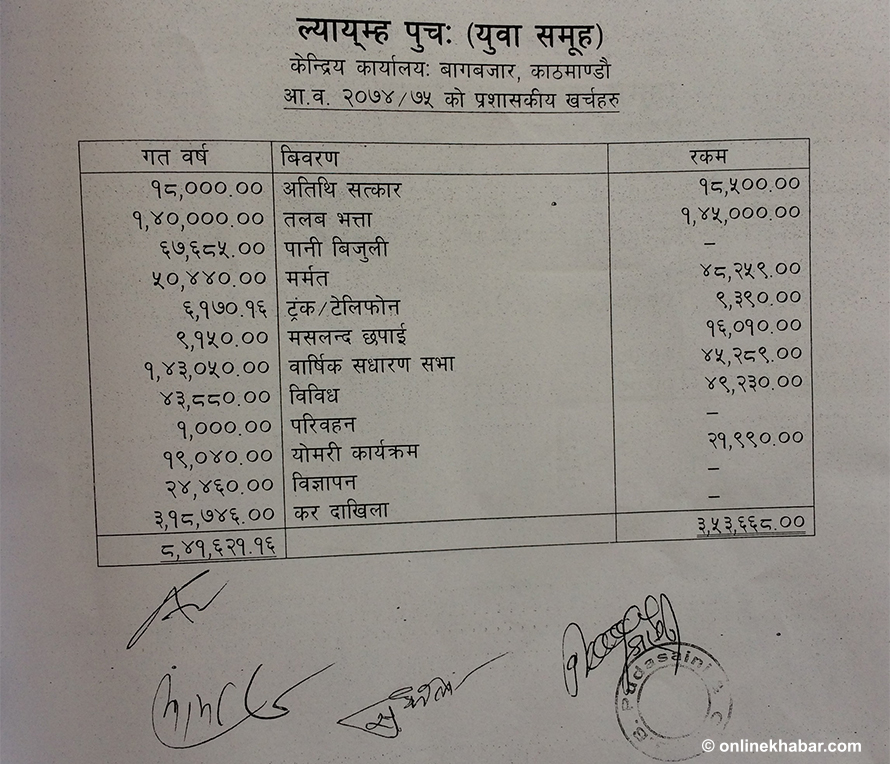 ल्याय्म्ह पुचः (युवा समूह)
केन्द्रिय कार्यालयः बागबजार, काठमाण्डौ
आ.व. २०७४/७५ को प्रशासकीय खर्चहरु
गत वर्ष बिवरण रकम
१८,०००.०० अतिथि सत्कार १८,५००.००
१,४०,०००.०० तलब भत्ता १,४५,०००.००
६७,६८५.०० पानी बिजुली –
५०,४४०.०० मर्मत ४८,२५९.००
६,१७०.१६ ट्रंक/टेलिफोन ९,३९०.००
९,१५०.०० मसलन्द छपाई १६,०१०.००
१,४३,०५०.०० वार्षिक सधारण सभा ४५,२८९.००
४३,८८०.०० विविध ४९,२३०.००
१,०००.०० परिवहन –
१९,०४०.०० योमरी कार्यक्रम २१,९९०.००
२४,४६०.०० विज्ञापन –
३,१८,७४६.०० कर दाखिला –
८,४१,६२१.१६ ३,५३,६६८.००
Pudasaini & C
© onlinekhabar.com